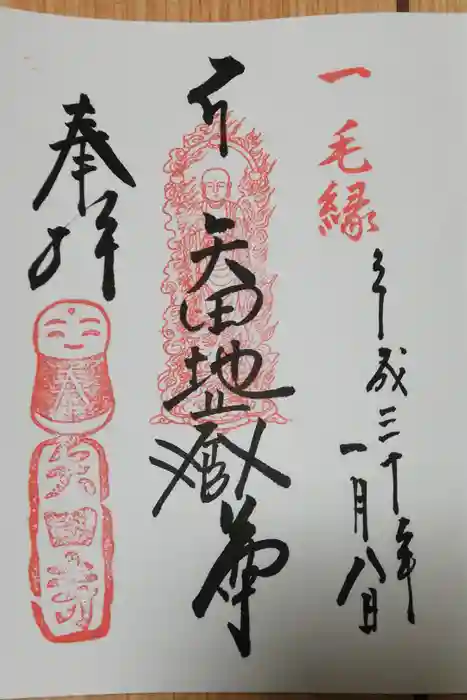 一毛縁
平成三十年
一月八日
矢田地蔵尊
奉拝
奉
矢田寺